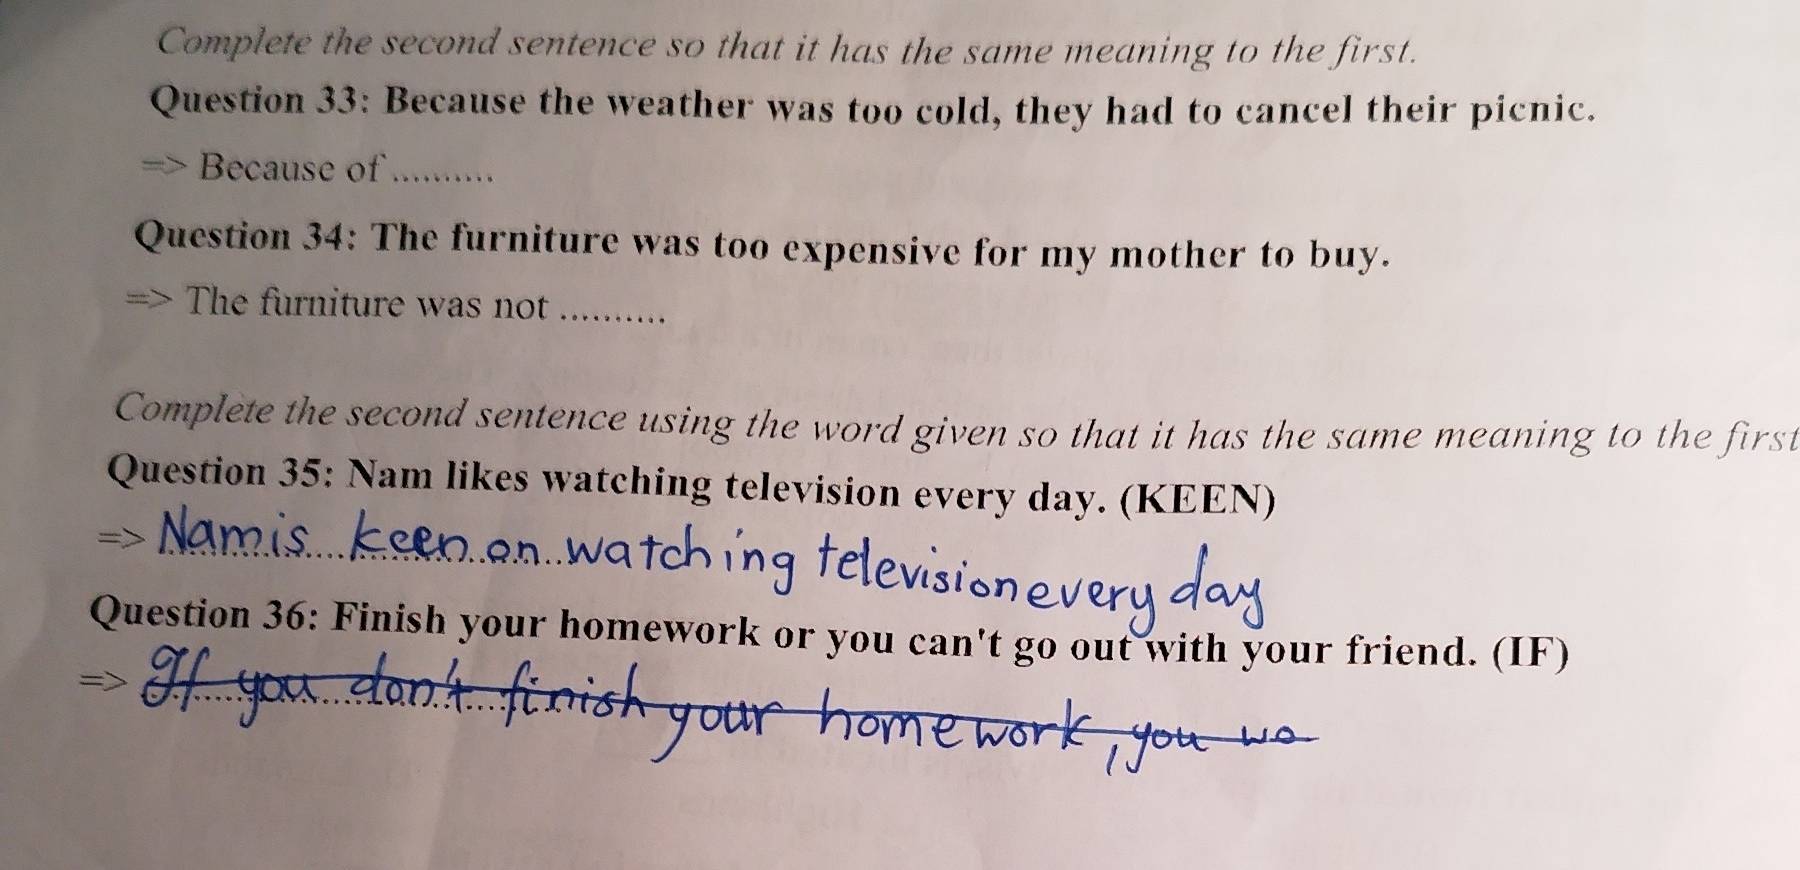 Complete the second sentence so that it has the same meaning to the first.
Question 33: Because the weather was too cold, they had to cancel their picnic.
=> Because of ..........
Question 34: The furniture was too expensive for my mother to buy.
=> The furniture was not ..........
Complete the second sentence using the word given so that it has the same meaning to the first
Question 35: Nam likes watching television every day. (KEEN)
=> Nam is keen on watching television every day
Question 36: Finish your homework or you can't go out with your friend. (IF)
=> If you don't finish your homework, you wo